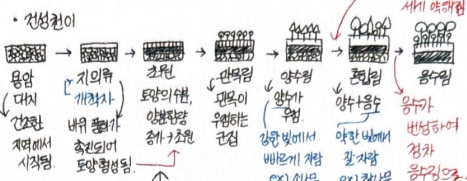 • 건성천이
세게 약해짐
용암
대지
건조한
지역에서
시작됨.
지의류
개척자
바위 풍화가
촉진되어
토양 형성됨
초원
토양의 수분,
양분함량
증가 → 초원
관목림
관목이
우점하는
군집
양수림
양수가
우점.
강한 빛에서
빠르게 자람
ex) 소나무
혼합림
양수+음수
약한 빛에서
잘 자람
ex) 참나무
음수림
음수가
번성하여
점차
음수림으로